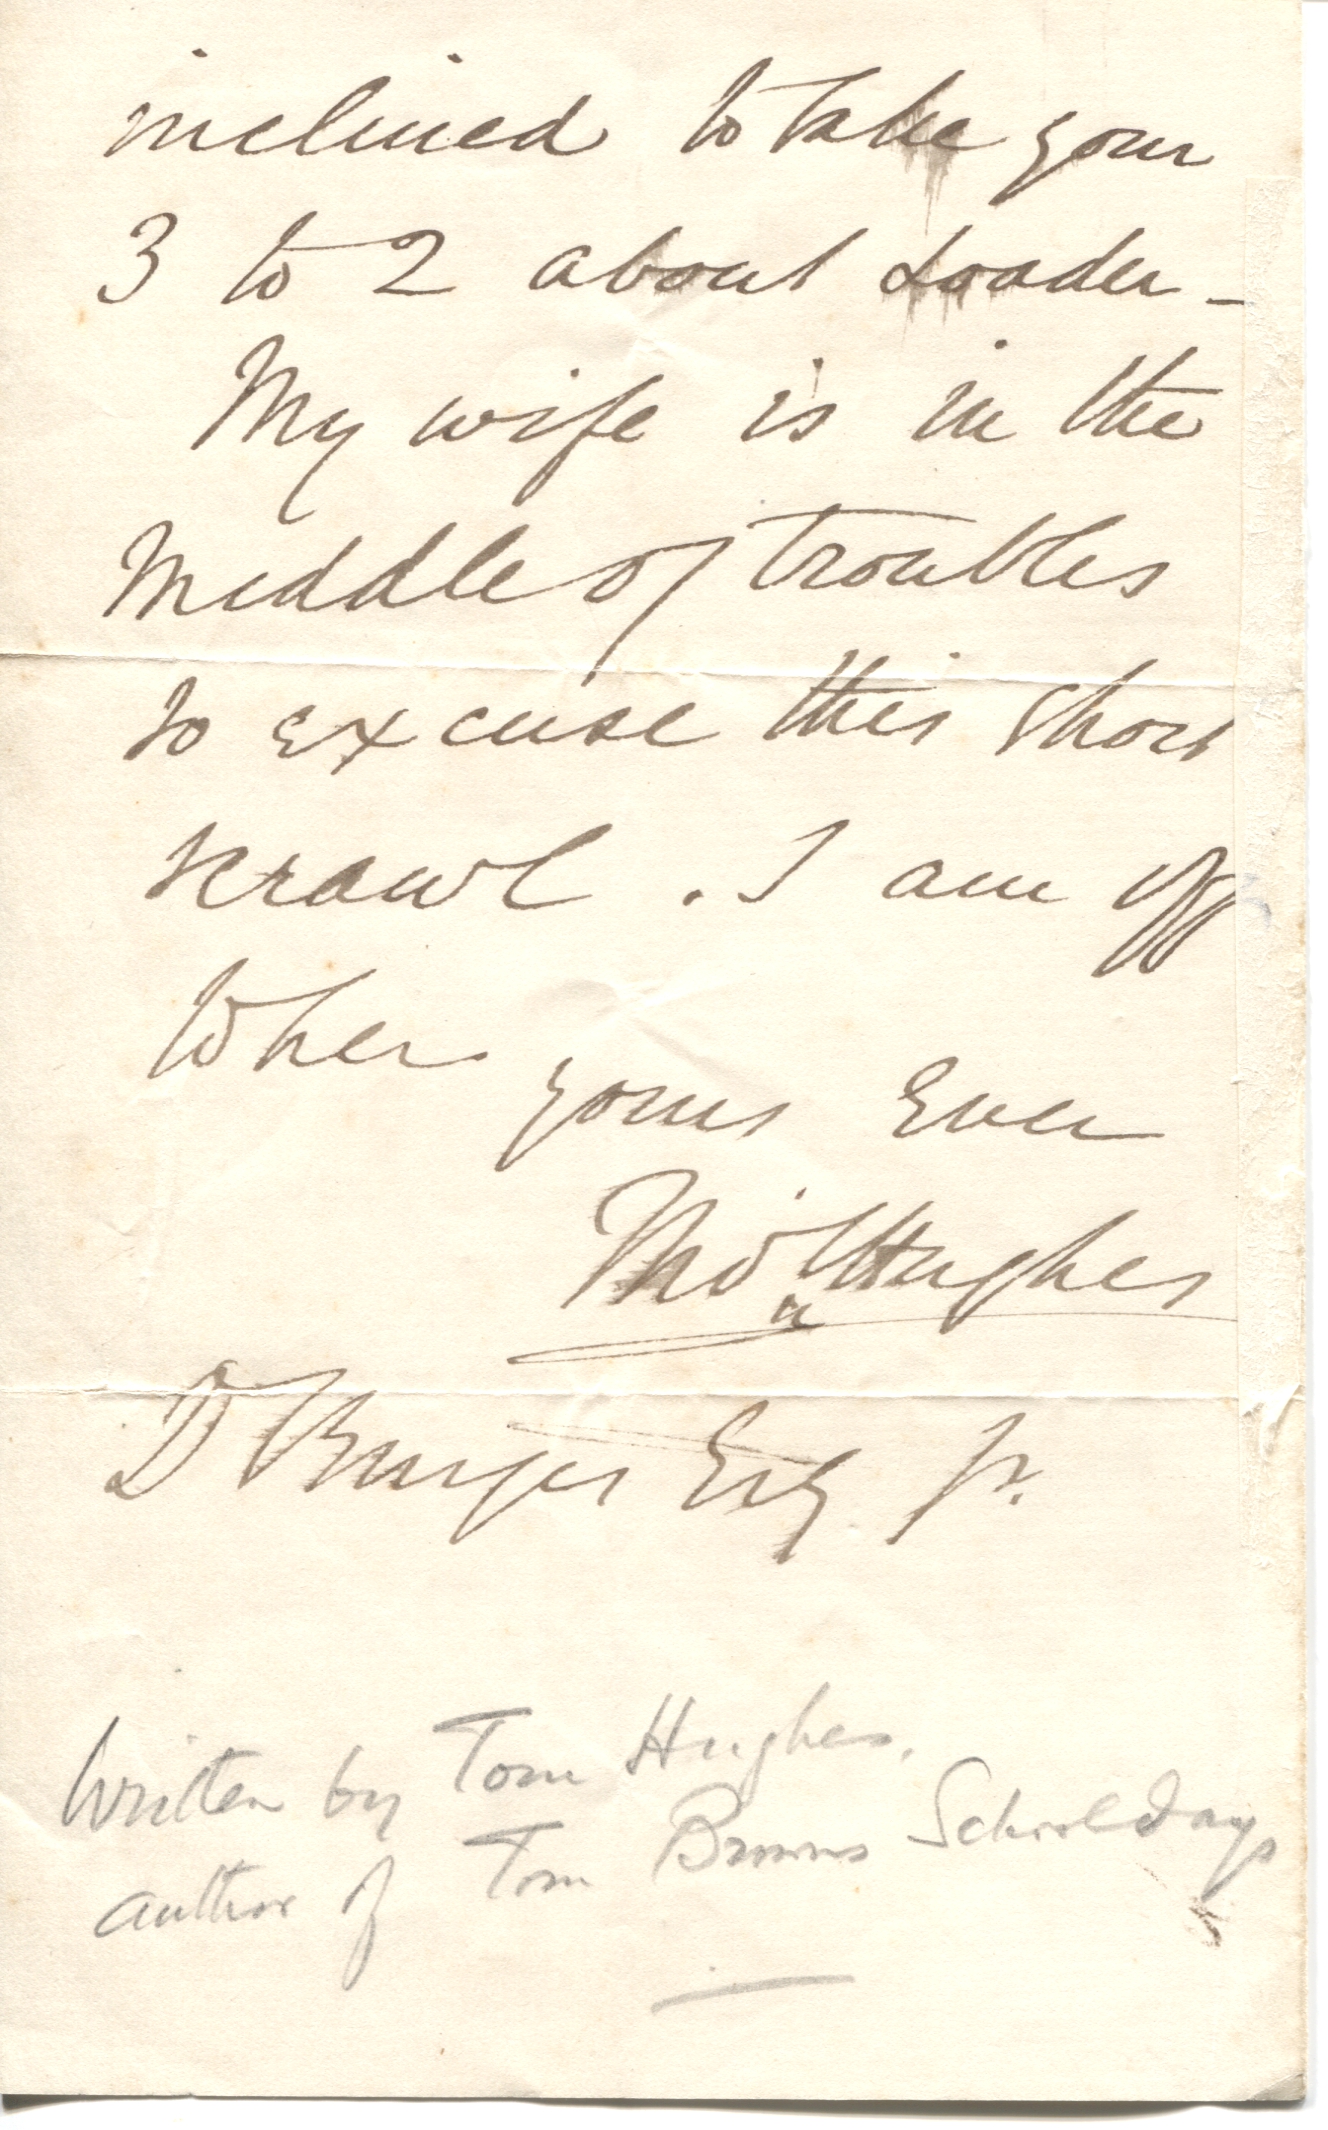 inclined to take your
3 to 2 about Loader -
My wife is in the
middle of troubles
so excuse this short
scrawl. I am off
to her
yours Ever
Thos Hughes
D Burges Esq Jr.
Written by Tom Hughes.
author of Tom Browns Schooldays